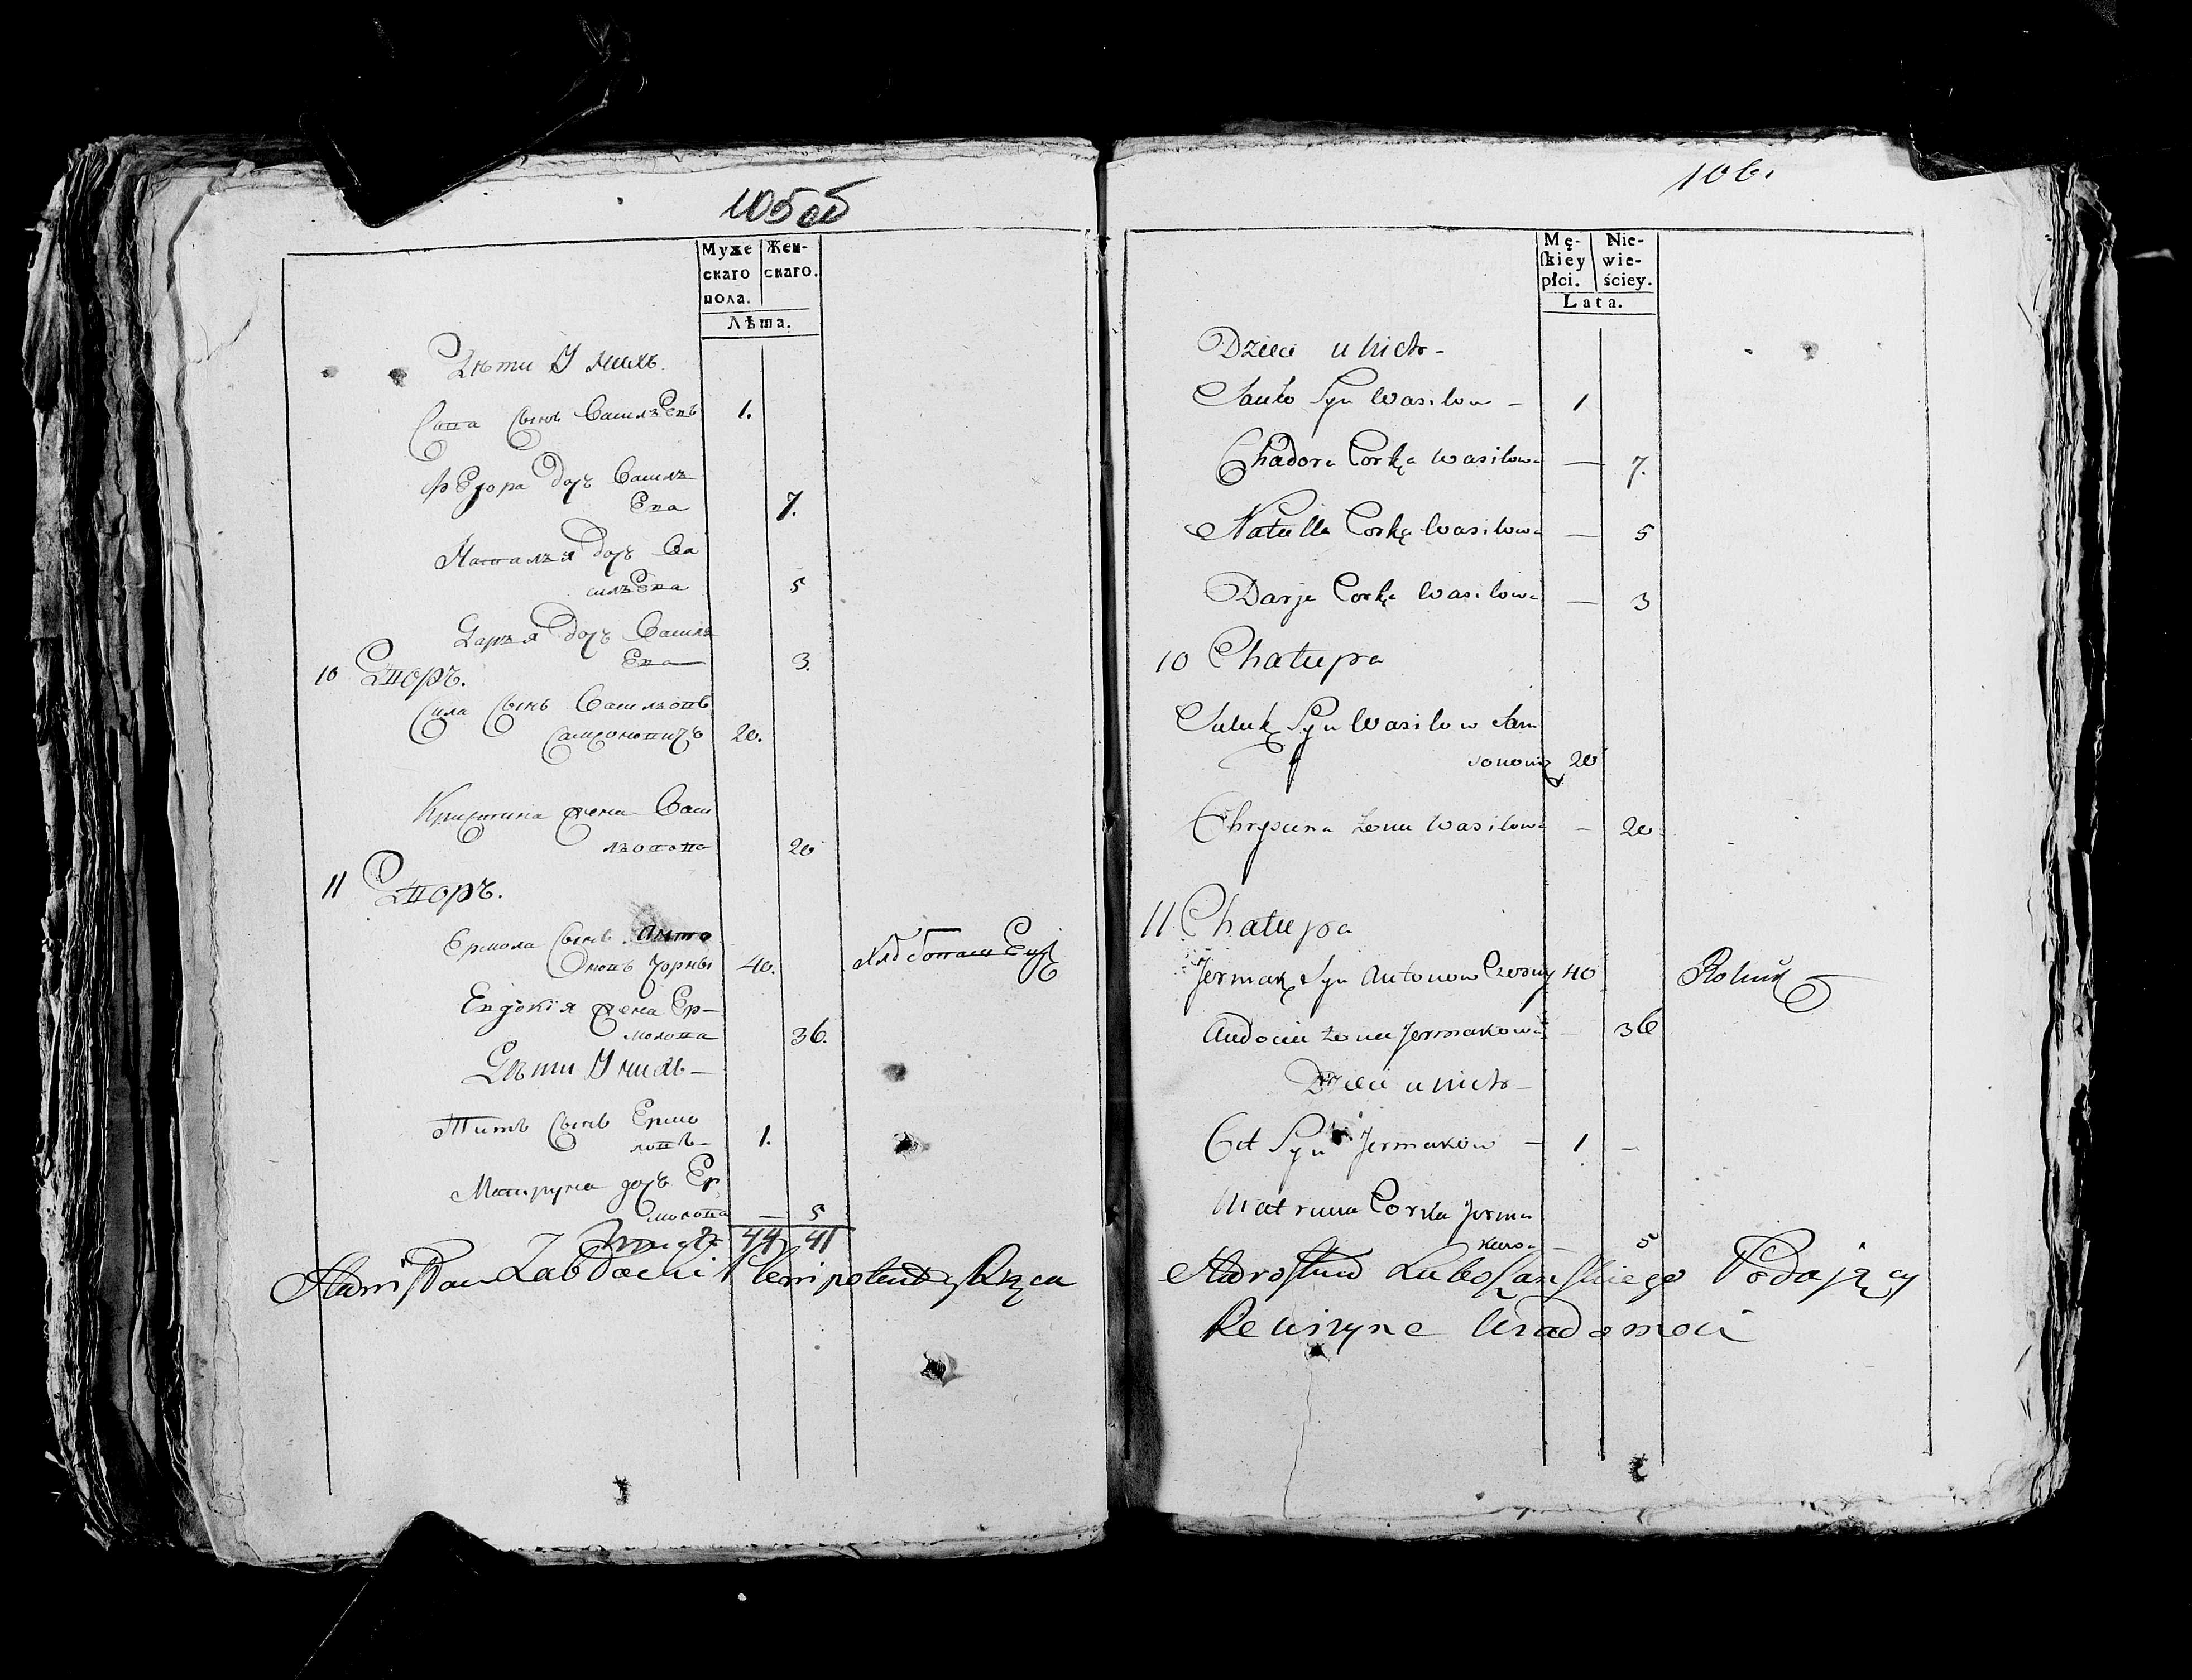 105об
Муже Жен-
скаго скаго.
пола.
Лѣта.
Дѣти У нихъ.
Сава Сынъ Василѣвъ 1.
Федора дочь Василь
Ева 7.
Наталья дочь Ва
сильева 5
Дарья дочь Василь
Ева 3.
10 Дворъ.
Сила Сынъ Васильовъ
Самсоновичъ 20.
Кристина жена Васи
льовова 20
11 Дворъ.
Ермола Сынъ Анто
Оновъ Чорны 40. Хлѣбопашецъ
Евдокія жена Ер-
молова 36.
Дѣти У нихъ -
Титъ Сынъ Ермо
ловъ- 1.
Матруна дочь Ер
молова — 5
44 41
Plenipotent y Rządca
106.
Mę- Nie-
skiey wie-
płci. ściey.
Lata.
Dzieci u nich -
Sawko Syn Wasilow - 1
Chadora Corka Wasilowa — 7.
Natulla Corka Wasilowa — 5
Darja Corka Wasilowa — 3
10 Chałupa
Syn Wasilow Sam
sonowicz 20
Chrystina żona Wasilowa - 20
11 Chałupa
Jermak Syn Antonow Czorny 40 Rolnik
Audocia żona Jermakowa - 36
Dzieci u nich -
Cit Syn Jermaków - 1 -
Matruna Corka Jerma
kowa - 5
Podający
Rewizyne Wiadomosci